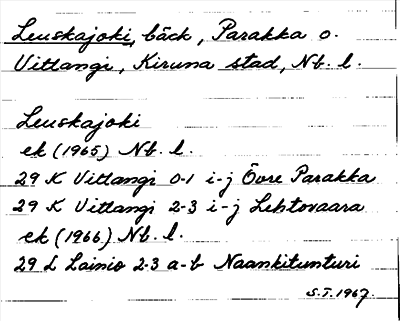 Leuskajoki, bäck, Parakka o.
Vittangi, Kiruna stad, Nb. l.
Leuskajoki
ek (1965) Nb. l.
29 K Vittangi 0-1 i-j Övre Parakka
29 K Vittangi 2-3 i-j Lehtovaara
ek (1966) Nb. l.
29 L Lainio 2-3 a-b Naankitunturi
S.T. 1967.